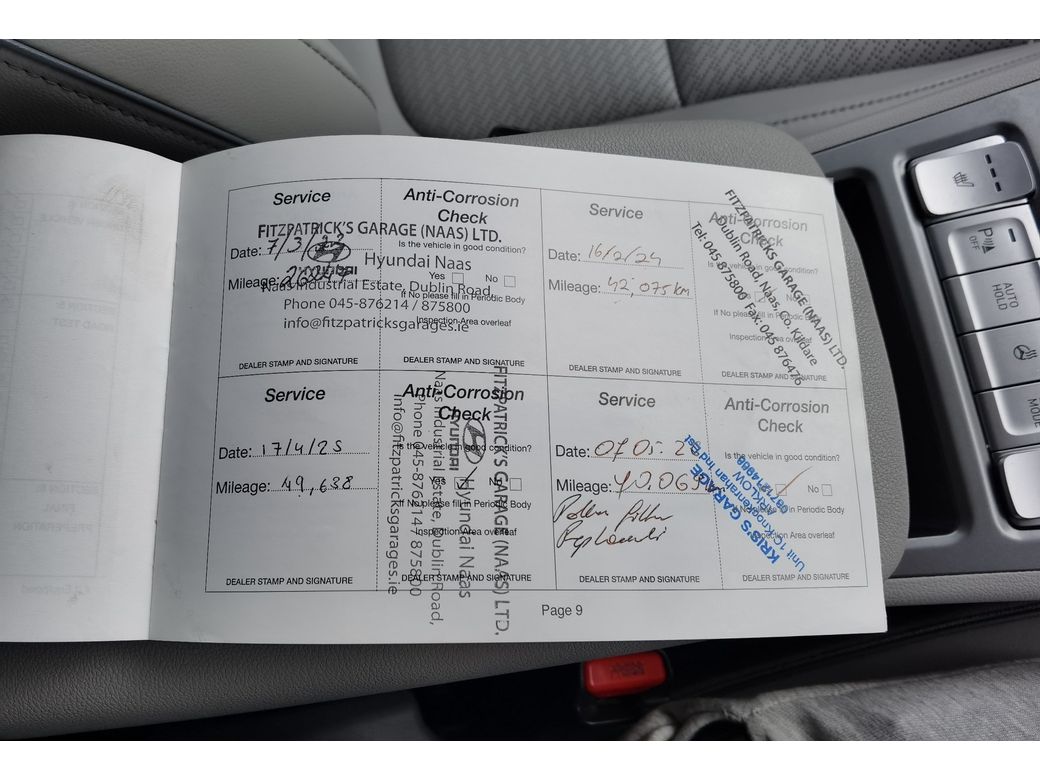 Service
Anti-Corrosion
Check
FITZPATRICK'S GARAGE (NAAS) LTD.
Date: 7/3/23
Is the vehicle in good condition?
HYUNDAI
Hyundai Naas
Mileage:
Yes No
Naas Industrial Estate, Dublin Road,
If No please fill in Periodic Body
Phone 045-876214 / 875800
Inspection Area overleaf
info@fitzpatricksgarages.ie
DEALER STAMP AND SIGNATURE
DEALER STAMP AND SIGNATURE
Service
Anti-Corrosion
Check
Date: 16/2/24
Mileage: 42,075km
If No please fill in Periodic
Inspection Area overleaf
FITZPATRICKS GARAGE (NAAS) LTD.
Dublin Road, Naas, Co. Kildare
Tel: 045-875800 Fax: 045-876476
DEALER STAMP AND SIGNATURE
DEALER STAMP AND SIGNATURE
Service
Anti-Corrosion
Check
Date: 17/4/25
Is the vehicle in good condition?
Mileage: 49,638
Yes No
If No please fill in Periodic Body
Inspection Area overleaf
FITZPATRICK'S GARAGE (NAAS) LTD.
HYUNDAI
Hyundai Naas
Naas Industrial Estate, Dublin Road,
Phone 045-876214 / 875800
info@fitzpatricksgarages.ie
DEALER STAMP AND SIGNATURE
DEALER STAMP AND SIGNATURE
Service
Anti-Corrosion
Check
Date:
Is the vehicle in good condition?
Mileage:
No
Pollen filter
Periodic Body
Inspection Area overleaf
KRIS'S GARAGE
Unit 1C
ARKLOW
DEALER STAMP AND SIGNATURE
DEALER STAMP AND SIGNATURE
Page 9
P
OFF
AUTO
HOLD
MODE